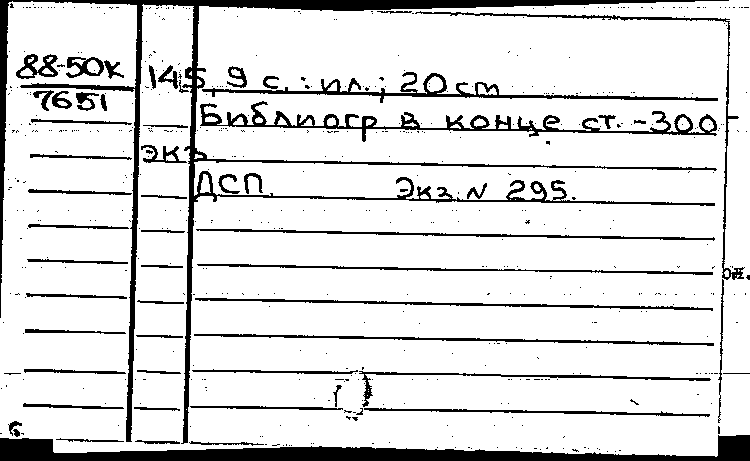 88-50К
7651
145, 9 с. : ил.; 20 cm
Библиогр в конце ст. -300
экз.
ДСП. Экз. N 295.